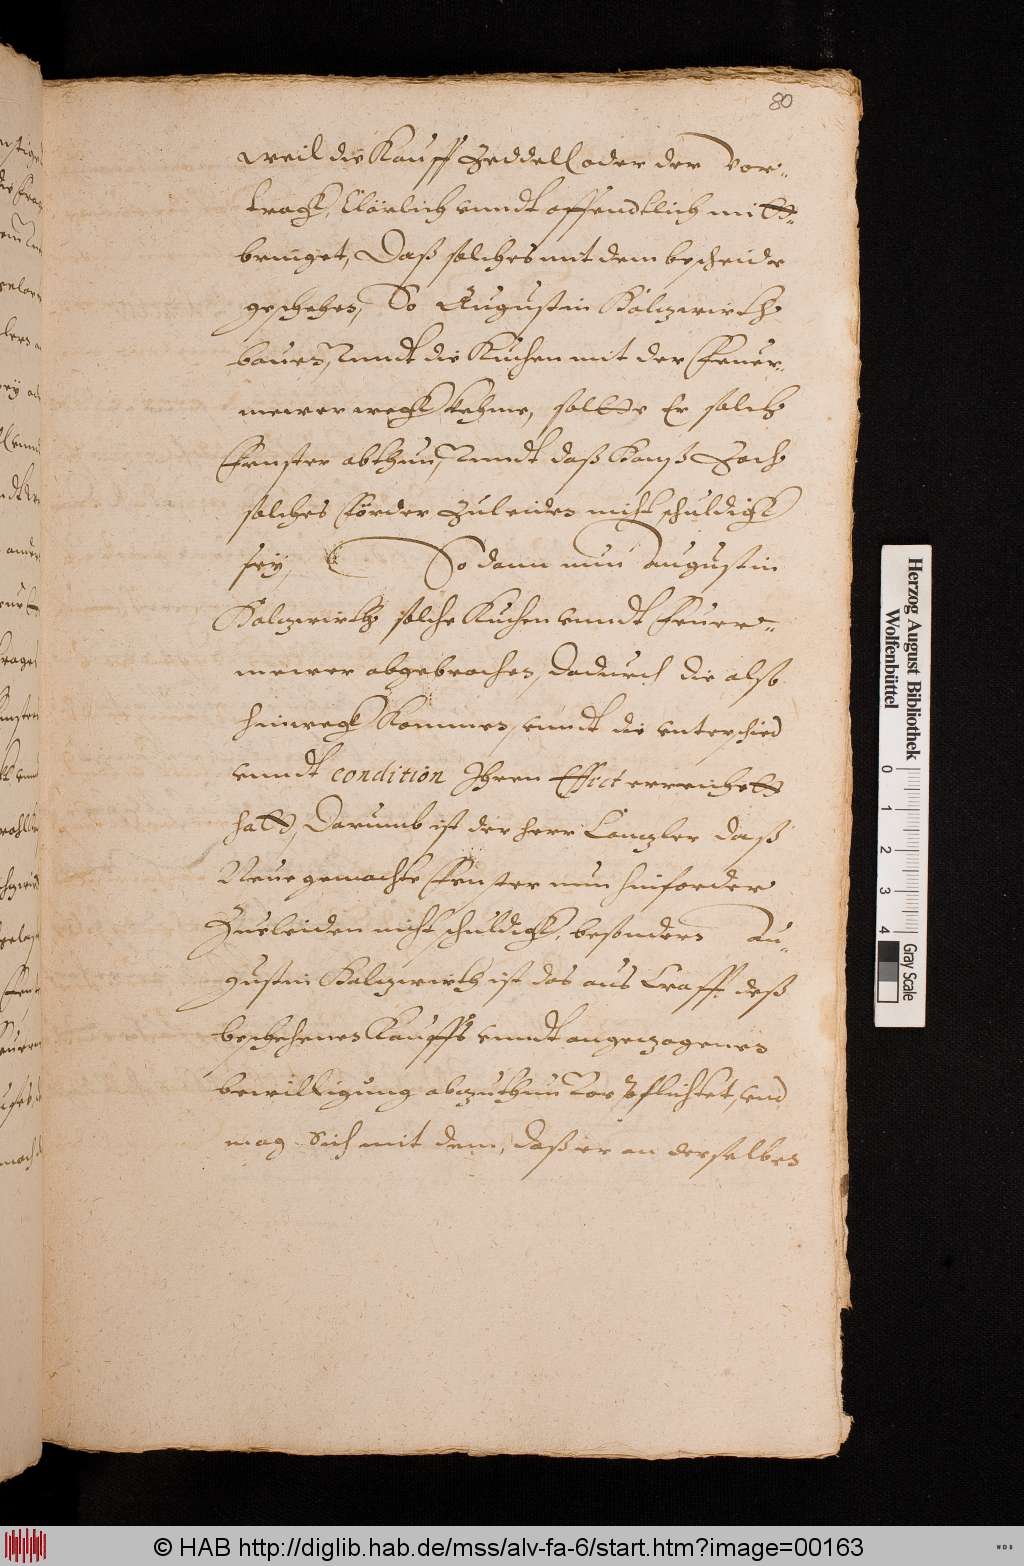 80
weil die Kauff Zeddell oder der vor-
tragk, klärlich vnndt offendtlich mitt-
bringet, Daß solches mit dem bescheide
geschehen, So Augustin Kalczwirth
bauen, vnndt die Kuchen mit der Feuer-
mewer wegk nehme, soltte Er solch
Fenster abthun, vnndt daß Hanß Zoch
solches förder zuleiden nicht schuldigk
sey, So dann nun Augustin
Kalczwirth solche Kuchen vnndt Feuer-
mewer abgebrochen, dadurch die also
hinwegk kommen, vnndt die vnterschied
vnndt condition Ihren Effect erreichett
hatt, Darumb ist der Herr Canzler daß
Neue gemachte Fenster nun hinforder
Zuleiden nicht schuldigk, besonders Au-
gustin Kalczwirth ist das aus Crafft deß
beschehenen Kauffs vnndt angezogenen
bewilligung abzuthun vorpflichtet, vnd
mag sich mit dem, Daß er an derselben
Herzog August Bibliothek
Wolfenbüttel
0 1 2 3 4
Gray Scale
© HAB http://diglib.hab.de/mss/alv-fa-6/start.htm?image=00163